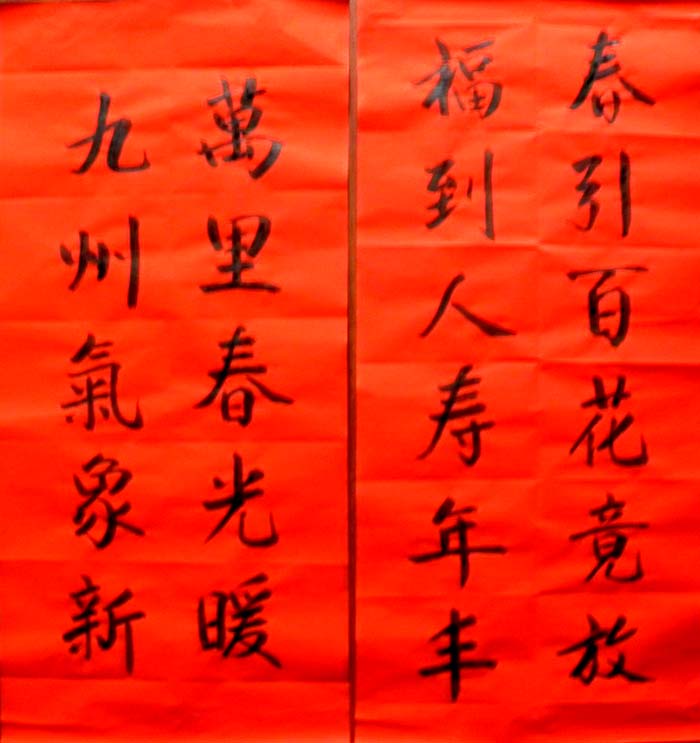 春引百花竟放
福到人寿年丰
萬里春光暖
九州氣象新